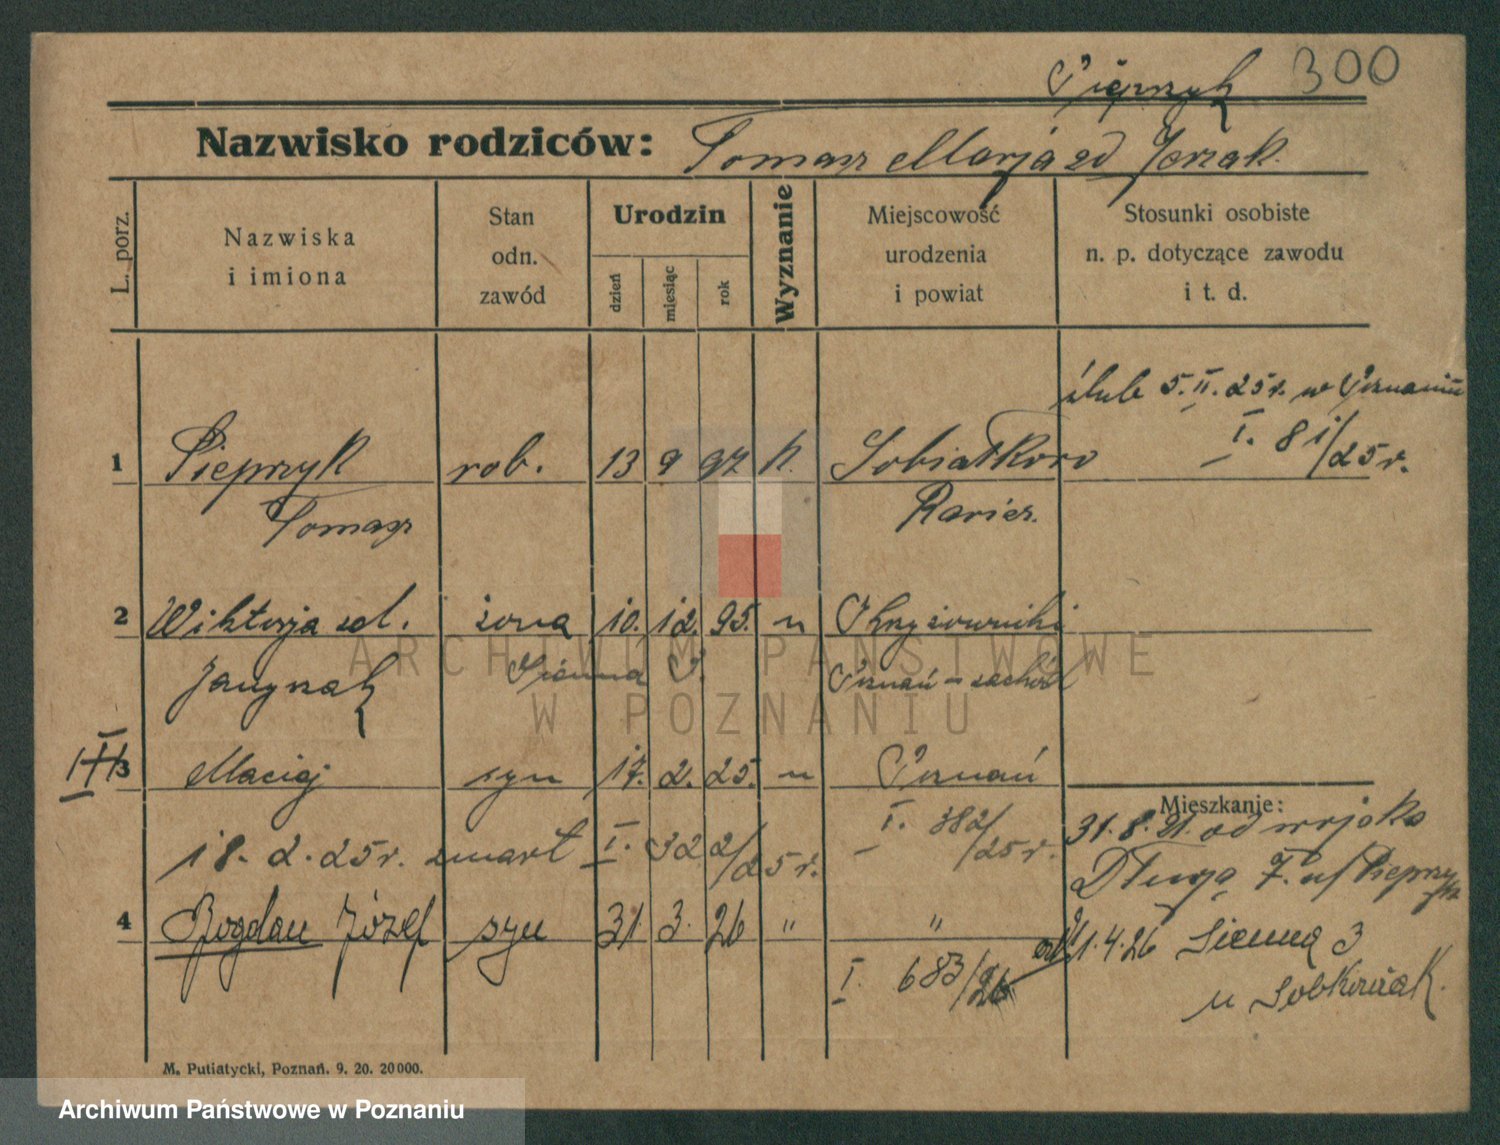 Pieprzyk 300
Nazwisko rodziców: Tomasz Marja zd Jerzak.
L. porz.
Nazwiska
i imiona
Stan
odn.
zawód
Urodzin
dzień
miesiąc
rok
Wyznanie
Miejscowość
urodzenia
i powiat
Stosunki osobiste
n. p. dotyczące zawodu
i t. d.
ślub 5.II.25r. w Poznaniu
I. 81/25r.
1 Pieprzyk rob. 13 9 97 k. Sobiałkowo
Tomasz Rawicz.
2 Wiktorja zd. żona 10. 12. 95. " Chrzyżowniki
Poznań - zachód
III 3 Maciej syn 17. 2. 25. " Poznań
I. 382/25r.
18. 2. 25r. zmarł I. 322/25r.
Mieszkanie:
31.8.21. od wojska
Długa 7. u/Pieprzyk
4 Bogdan Józef syn 31 3. 26 " "
I. 683/26
1.4.26 Sienna 3
u Sobkowiak.
M. Putiatycki, Poznań. 9. 20. 20000.
ARCHIWUM PAŃSTWOWE
W POZNANIU
Archiwum Państwowe w Poznaniu